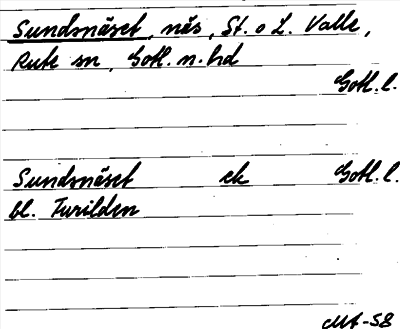 Sundsnäset, näs, St. o L. Valle,
Rute sn, Gotl. n. hd
Gotl. l.
Sundsnäset ek Gotl. l.
bl. Turilden
MA-58